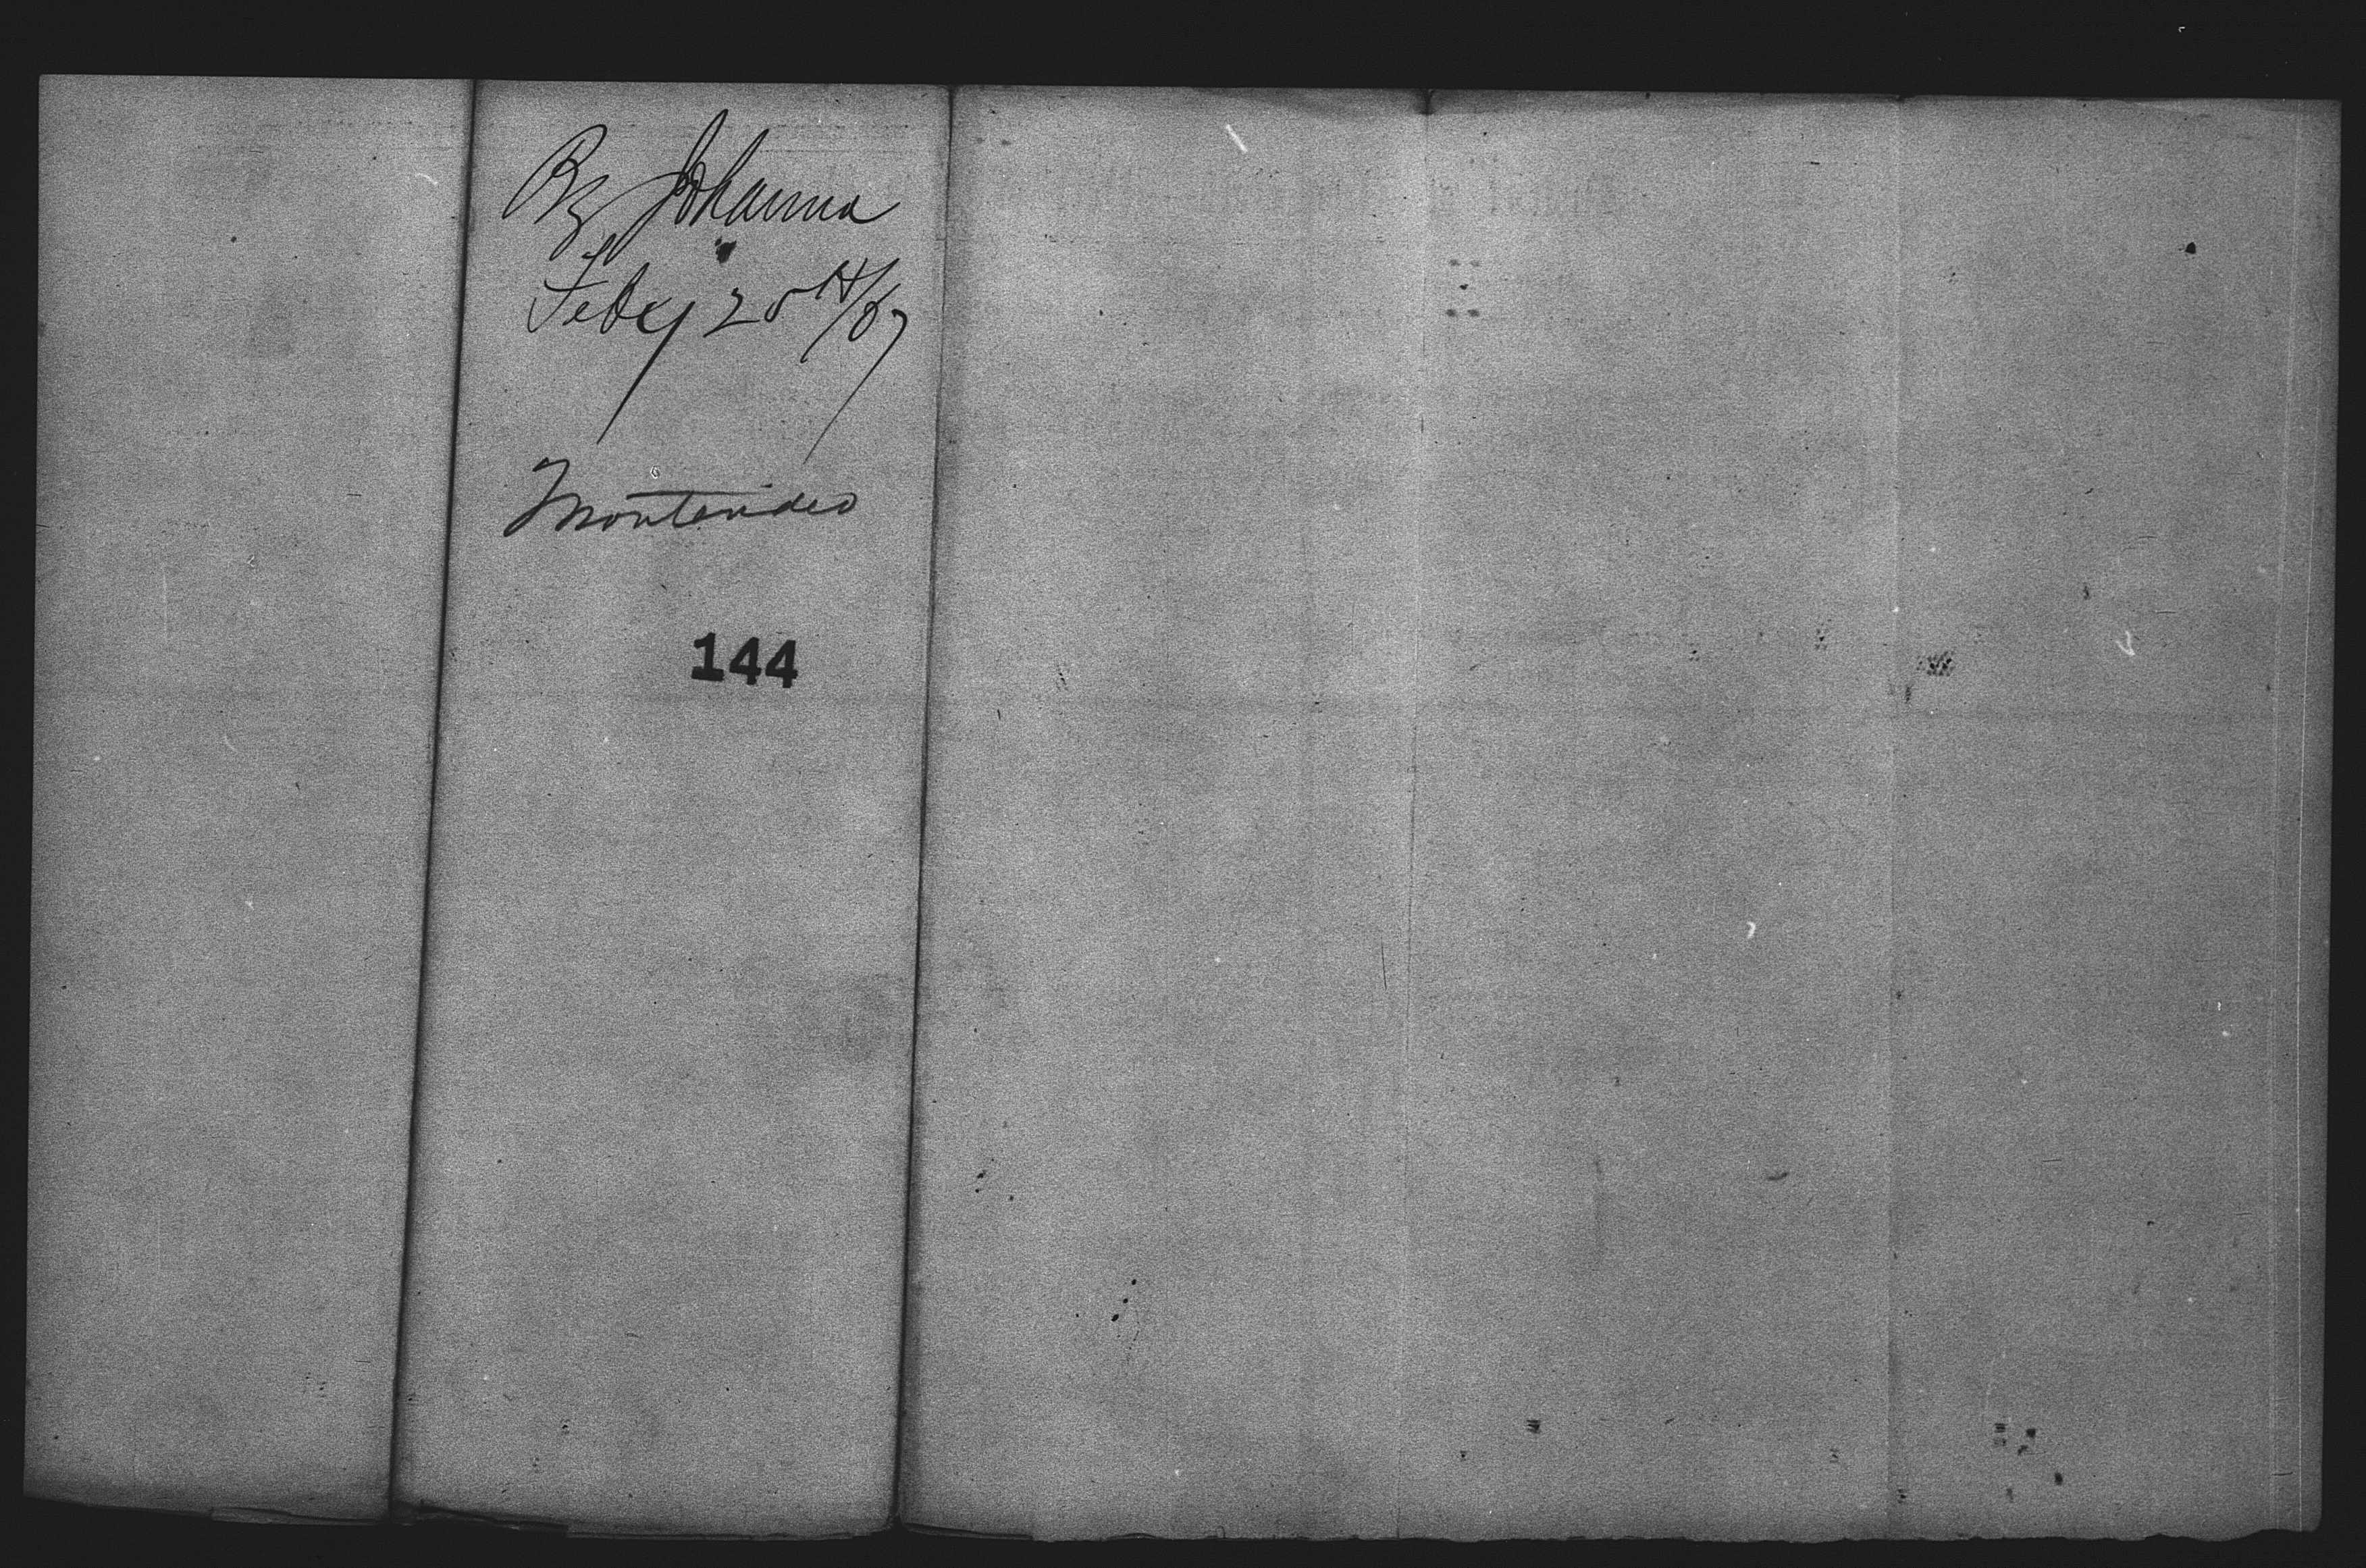 Bg Johanna
Feby 25th/67
Montevideo
144